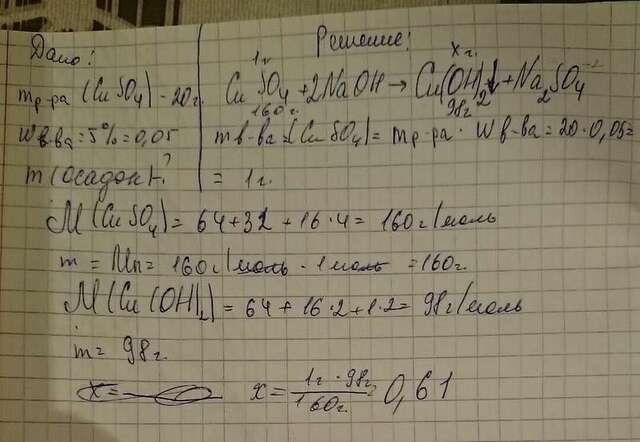 Дано:
mр-ра (CuSO₄) - 20г.
Wв-ва = 5% = 0,05
m(осадок)-?
Решение:
1г. x г.
CuSO₄ + 2NaOH → Cu(OH)₂↓ + Na₂SO₄
160г. 98г.
mв-ва (CuSO₄) = mр-ра · Wв-ва = 20 · 0,05 =
= 1г.
M(CuSO₄) = 64+32+16·4 = 160г/моль
m = Mn = 160г/моль · 1моль = 160г.
M(Cu(OH)₂) = 64+16·2+1·2 = 98г/моль
m = 98г.
x = 1г · 98г / 160г. = 0,61